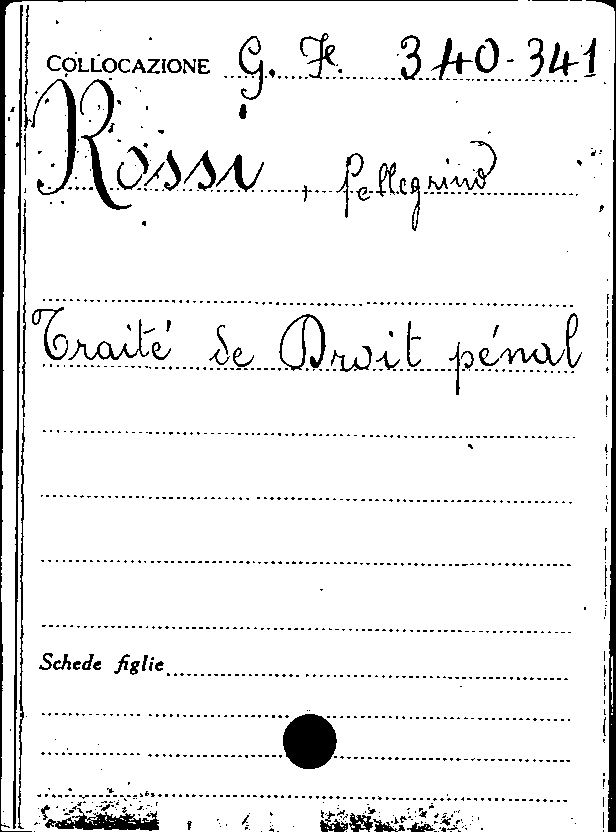 COLLOCAZIONE G. F. 340-341
Rossi, Pellegrino
Traité de Droit pénal
Schede figlie